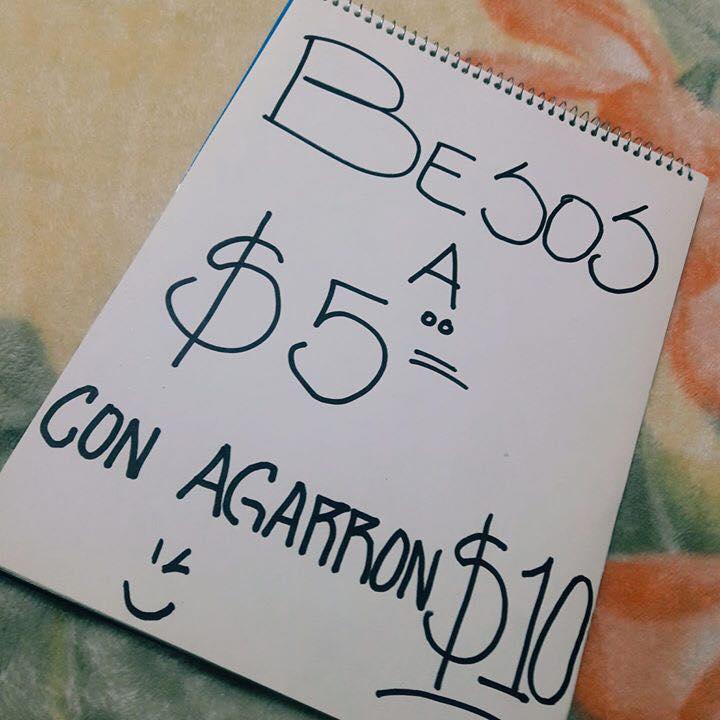 BESOS
A
$5.00
CON AGARRON $10